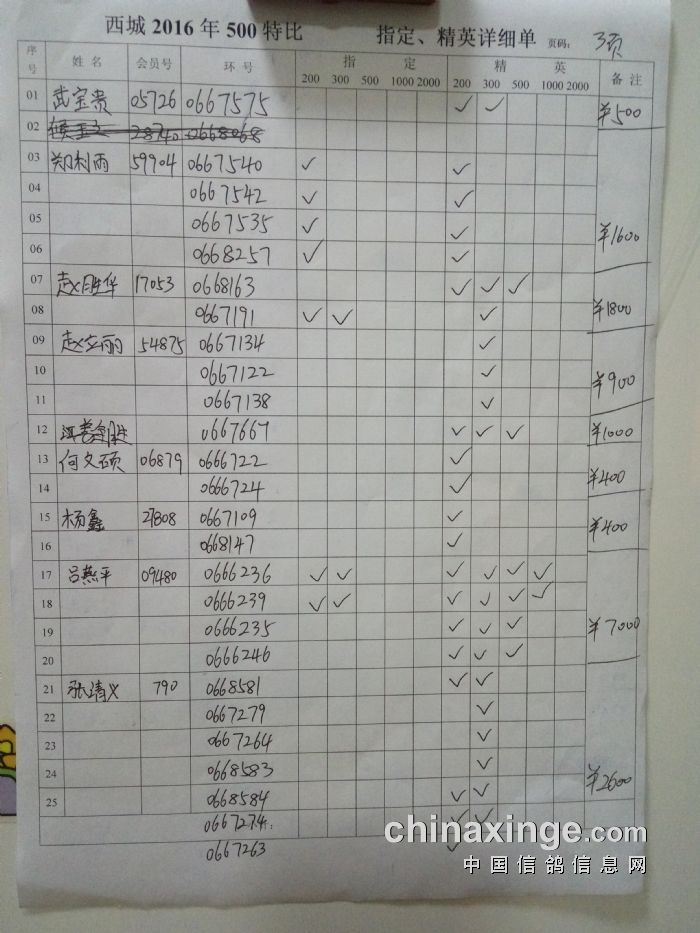 西城 2016 年 500 特比 指定、精英详细单 页码: 3页
序号 姓名 会员号 环号 指定 精英 备注
200 300 500 1000 2000 200 300 500 1000 2000
01 武宝贵 05726 0667575 ✓ ✓ ¥500
02 28740 0668068
03 郑利雨 59904 0667540 ✓ ✓
04 0667542 ✓ ✓
05 0667535 ✓ ✓
06 0668257 ✓ ✓ ¥1600
07 赵胜华 17053 0668163 ✓ ✓ ✓
08 0667191 ✓ ✓ ✓ ¥1800
09 赵立丽 54875 0667134 ✓
10 0667122 ✓ ¥900
11 0667138 ✓
12 0667667 ✓ ✓ ✓ ¥1000
13 何文硕 06879 0666722 ✓
14 0666724 ✓ ¥400
15 杨鑫 27808 0667109 ✓
16 0668147 ✓ ¥400
17 吕燕平 09480 0666236 ✓ ✓ ✓ ✓ ✓ ✓
18 0666239 ✓ ✓ ✓ ✓ ✓ ✓
19 0666235 ✓ ✓ ✓ ¥7000
20 0666246 ✓ ✓ ✓
21 张清义 790 0668581 ✓ ✓
22 0667279 ✓
23 0667264 ✓
24 0668583 ✓ ¥2600
25 0668584 ✓ ✓
0667274 ✓ ✓
0667263 ✓
chinaxinge.com
中国信鸽信息网